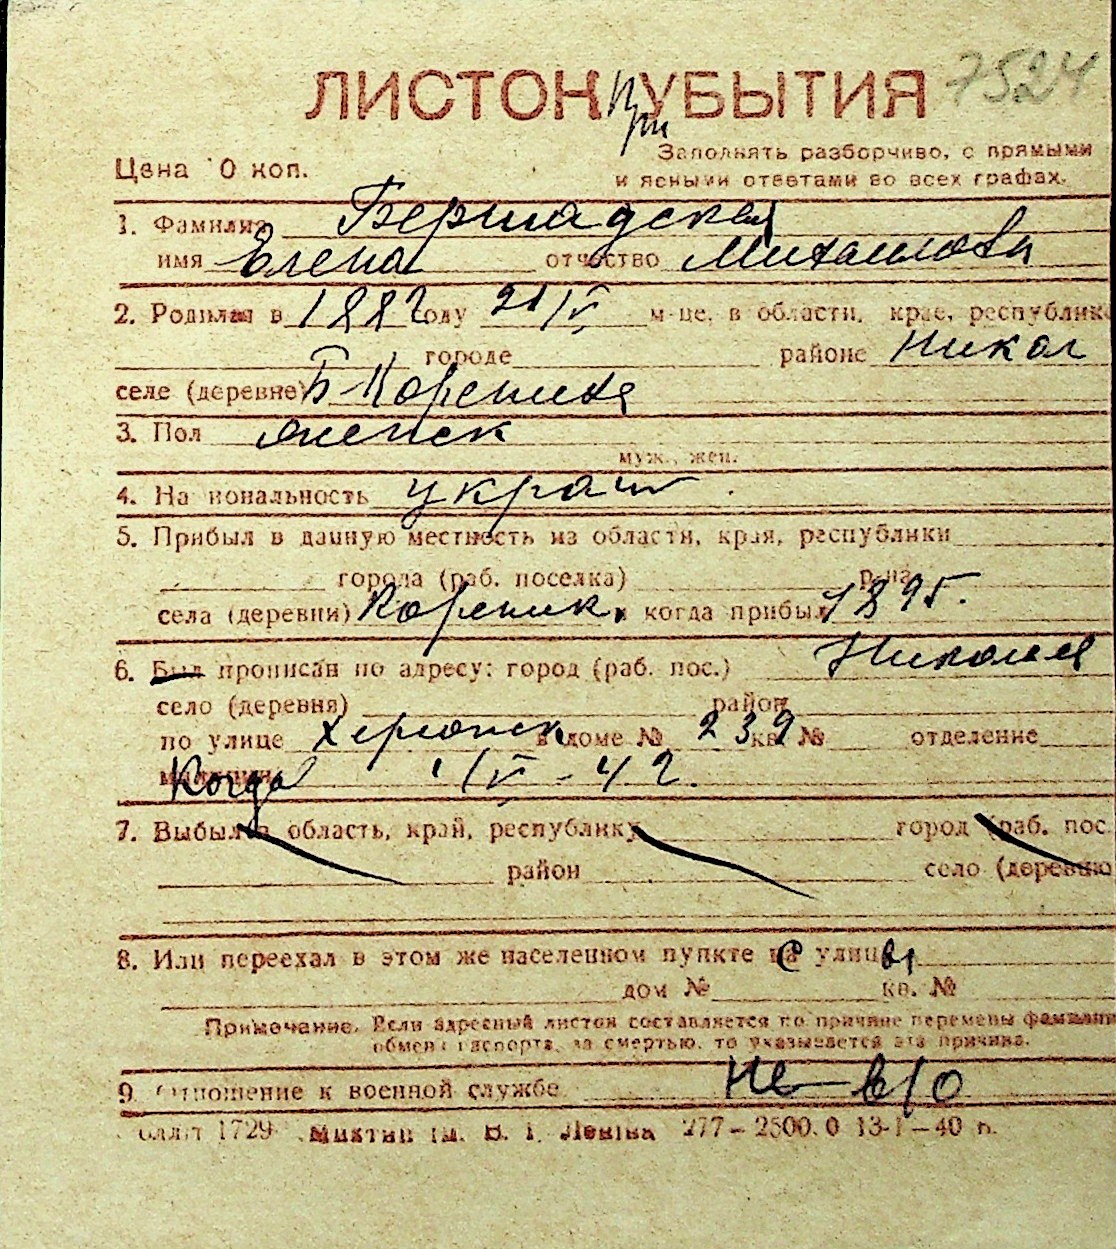 ЛИСТОК При УБЫТИЯ 7524
Заполнять разборчиво, с прямыми
Цена 10 коп. и ясными ответами во всех графах.
1. Фамилия Бершадская
имя Елена отчество Михайловн
2. Родилая в 1882 году 21/V м-це, в области, крае, республике
городе районе Никол
селе (деревне) Б-Корениха
3. Пол женск
муж., жен.
4. Национальность украин
5. Прибыл в данную местность из области, края, республики
города (раб. поселка) р-на
села (деревни) Корених, когда прибыл 1895.
6. Был прописан по адресу: город (раб. пос.) Николаев
село (деревня) район
по улице Херсонск в доме № 239 кв. № отделение
милиции Когда 1/VI-42.
7. Выбыл в область, край, республику город (раб. пос.
район село (деревню
8. Или переехал в этом же населенном пункте на с улицы
дом № кв. №
Примечание. Если адресный листок составляется по причине перемены фамилии
обмена паспорта, за смертью, то указывается эта причина.
9. Отношение к военной службе не в/о
1729 Миктип ім. В. І. Леніна 277-2500.0 13-I-40 п.